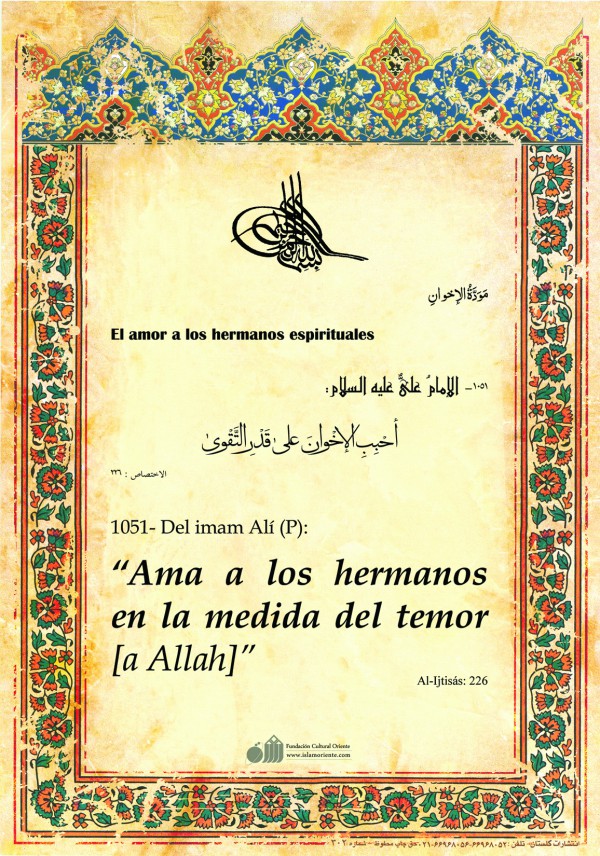 مَوَدَّةُ الإخوانِ
El amor a los hermanos espirituales
١٠٥١- الإمامُ عَلِيٌّ عَلَيهِ السلام :
أَحْبِبِ الإِخْوانَ عَلىٰ قَدْرِ التَّقْوىٰ
الاختصاص : ٢٢٦
1051- Del imam Alí (P):
“Ama a los hermanos
en la medida del temor
[a Allah]”
Al-Ijtisás: 226
Fundación Cultural Oriente
www.islamoriente.com